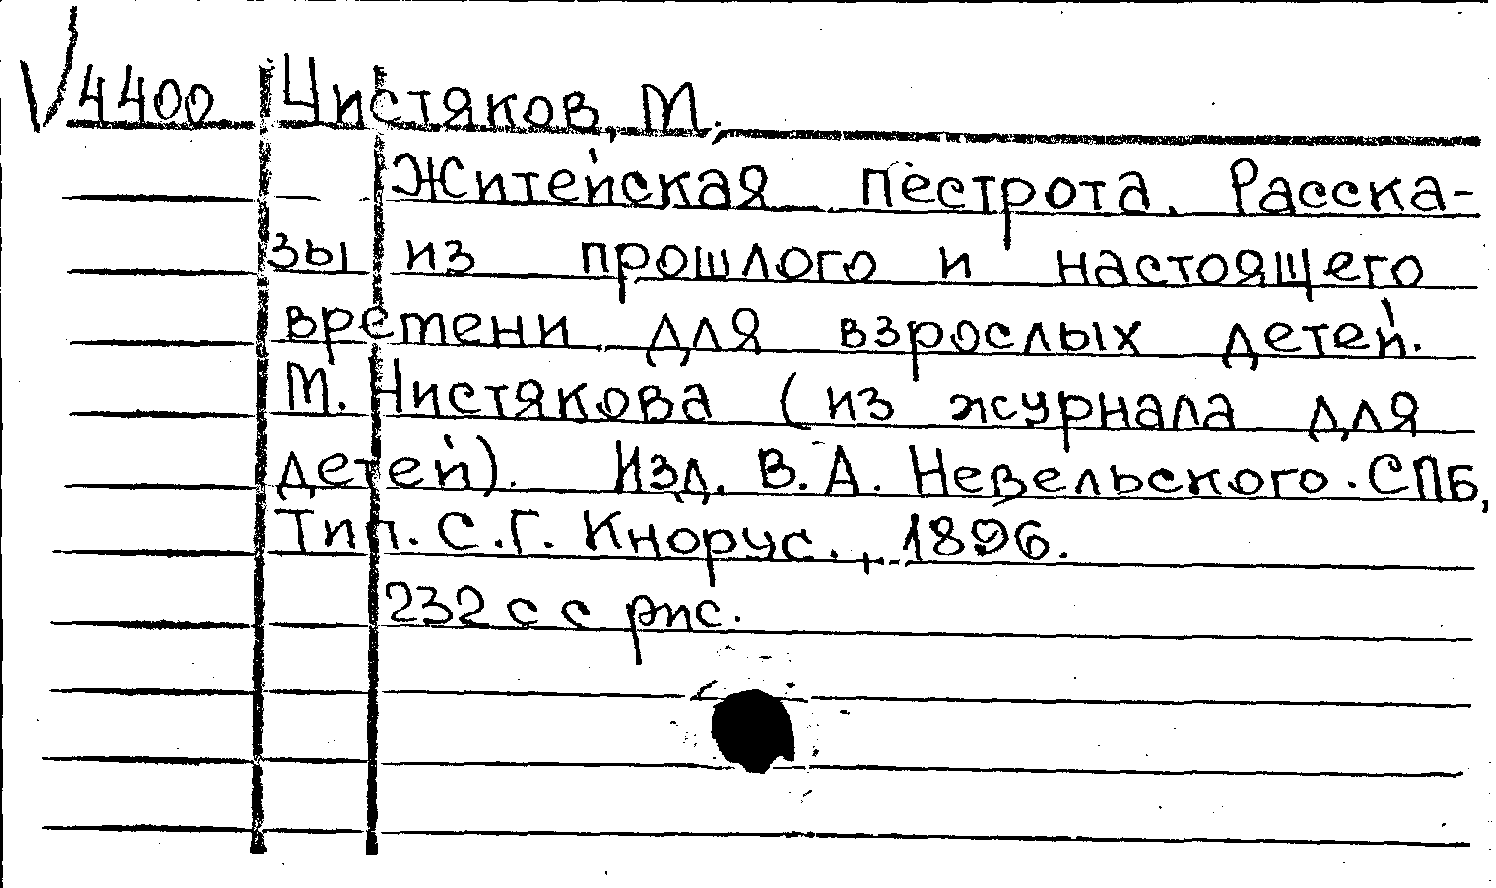 V 4400 Чистяков, М.
Житейская пестрота. Расска-
зы из прошлого и настоящего
времени для взрослых детей.
М. Чистякова (из журнала для
детей). Изд. В. А. Невельского. СПБ,
Тип. С. Г. Кнорус., 1896.
232 с с рис.